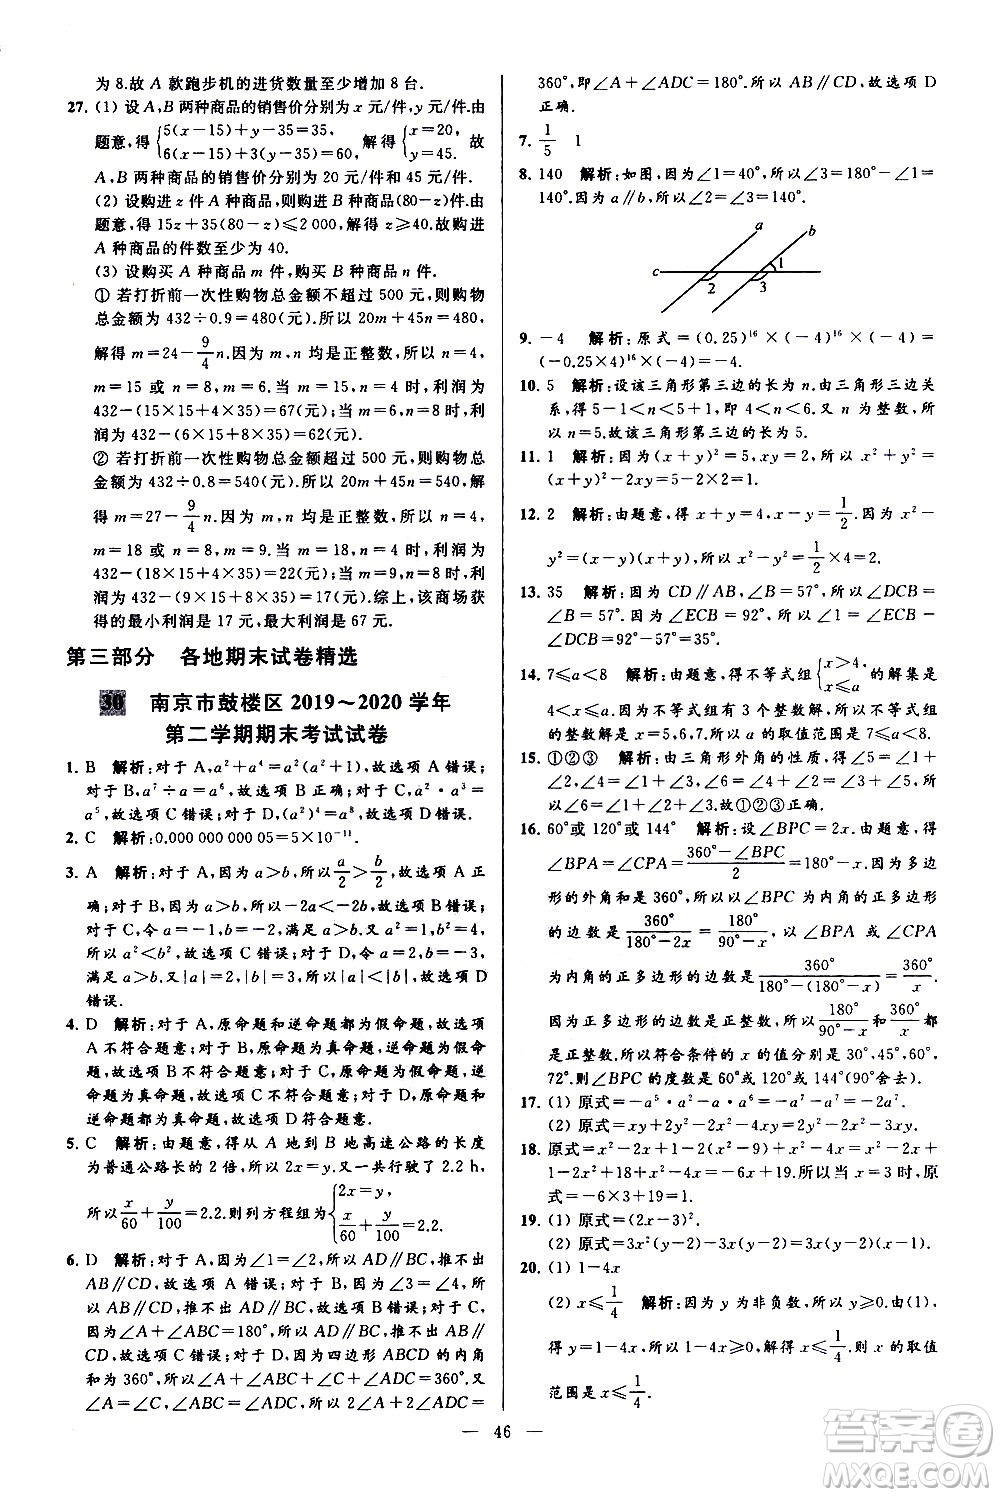 为 8.故 A 款跑步机的进货数量至少增加 8 台.
27. (1) 设 A,B 两种商品的销售价分别为 x 元/件,y 元/件.由
题意,得 {5(x-15)+y-35=35, 6(x-15)+3(y-35)=60, 解得 {x=20, y=45. 故
A,B 两种商品的销售价分别为 20 元/件和 45 元/件.
(2) 设购进 z 件 A 种商品,购进 B 种商品(80-z)件.由
题意,得 15z+35(80-z)≤2 000,解得 z≥40.故购进
A 种商品的件数至少为 40.
(3) 设购买 A 种商品 m 件,购买 B 种商品 n 件.
① 若打折前一次性购物总金额不超过 500 元,则购物
总金额为 432÷0.9=480(元).所以 20m+45n=480,
解得 m=24-9/4n.因为 m,n 均是正整数,所以当
m=15 时,n=4;当 m=6 时,n=8.当 m=15 时,利润为
432-(15×15+4×35)=67(元);当 m=6 时,利
润为 432-(6×15+8×35)=62(元).
② 若打折前一次性购物总金额超过 500 元,则购物总
金额为 432÷0.8=540(元).所以 20m+45n=540,解
得 m=27-9/4n.因为 m,n 均是正整数,所以当
m=18 时,n=4;当 m=9 时,n=8.当 m=18 时,利润为
432-(18×15+4×35)=22(元);当 m=9 时,利润为
432-(9×15+8×35)=17(元).综上,该商场获得
的最小利润是 17 元,最大利润是 67 元.
第三部分 各地期末试卷精选
30 南京市鼓楼区 2019~2020 学年
第二学期期末考试试卷
1. B 解析:对于 A,a²+a⁴=a²(a²+1),故选项 A 错误;
对于 B,a⁷÷a=a⁶,故选项 B 正确;对于 C,a²·a³=
a⁵,故选项 C 错误;对于 D,(a²)⁴=a⁸,故选项 D 错误.
2. C 解析:0.000 000 000 05=5×10⁻¹¹.
3. A 解析:对于 A,因为 a>b,所以a/2>b/2,故选项 A 正
确;对于 B,因为 a>b,所以-2a<-2b,故选项 B 错误;
对于 C,令 a=1,b=-2,满足 a>b,但 a²=1,b²=4,
a²<b²,故选项 C 错误;对于 D,令 a=1,b=-2,满足
a>b,|a|=1,|b|=2,所以|a|<|b|,故选项 D
错误.
4. D 解析:对于 A,原命题和逆命题都为假命题,故选项
A 不符合题意;对于 B,原命题为真命题,逆命题为假命
题,故选项 B 不符合题意;对于 C,原命题为假命题,逆
命题为真命题,故选项 C 不符合题意;对于 D,原命题和
逆命题都为真命题,故选项 D 符合题意.
5. C 解析:由题意,得从 A 地到 B 地高速公路的长度
为普通公路长的 2 倍,所以 2x=y.因为共行驶了 2.2 h,
所以x/60+y/100=2.2.则列方程组为{2x=y, x/60+y/100=2.2.
6. D 解析:对于 A,因为∠1=∠2,所以 AD∥BC,推不出
AB∥CD,故选项 A 错误;对于 B,因为∠3=∠4,所以
AD∥BC,推不出 AB∥CD,故选项 B 错误;对于 C,
因为∠A+∠ABC=180°,所以 AD∥BC,推不出
AB∥CD,故选项 C 错误;因为四边形 ABCD 的内角
和为 360°,所以∠A+∠ABC+∠C+∠ADC=360°.
因为∠ABC=∠ADC,∠A=∠C,所以 2∠A+2∠ADC=
360°,即∠A+∠ADC=180°.所以 AB∥CD,故选项 D
正确.
7. 1/5 1
8. 140 解析:如图,因为∠1=40°,所以∠3=180°-∠1=
140°.因为 a∥b,所以∠2=∠3=140°.
a b
c 1
2 3
9. -4 解析:原式=(0.25)¹⁶×(-4)¹⁶×(-4)=
(-0.25×4)¹⁶×(-4)=-4.
10. 5 解析:设该三角形第三边的长为 n.由三角形三边关
系,得 5-1<n<5+1,即 4<n<6.又 n 为整数,所
以 n=5.故该三角形第三边的长为 5.
11. 1 解析:因为(x+y)²=x²+2xy+y²,所以 x²+y²=
(x+y)²-2xy=5-2×2=1.
12. 2 解析:由题意,得 x+y=4,x-y=1/2.因为 x²-
y²=(x-y)(x+y),所以 x²-y²=1/2×4=2.
13. 35 解析:因为 CD∥AB,∠B=57°,所以∠DCB=
∠B=57°.因为∠ECB=92°,所以∠ECD=∠ECB-
∠DCB=92°-57°=35°.
14. 7≤a<8 解析:由题意,得不等式组{x>4, x≤a 的解集为
4<x≤a.因为不等式组有 3 个整数解,所以不等式组
的整数解为 x=5,6,7.所以 a 的取值范围是 7≤a<8.
15. ①②③ 解析:由三角形外角的性质,得∠1+∠5=
∠4,∠2+∠5=∠6.因为∠6=∠4,∠6=∠1+∠2,所
以∠6=∠4=∠1+∠2.故①②③正确.
16. 60°或 120°或 144° 解析:设∠BPC=2x.由题意,得
∠BPA=∠CPA=(360°-∠BPC)/2=180°-x.因为多边
形的外角和是 360°,所以以∠BPC 为内角的正多边形
的边数是360°/(180°-2x)=180°/(90°-x),以∠BPA 或∠CPA
为内角的正多边形的边数是360°/(180°-(180°-x))=360°/x.
因为正多边形的边数是正整数,所以180°/(90°-x)和360°/x都
是正整数.所以符合条件的 x 的值分别是 30°,45°,60°,
72°.∠BPC 的度数是 60°或 120°或 144°(90°舍去).
17. (1) 原式=-a⁵·a²-a·a⁶=-a⁷-a⁷=-2a⁷.
(2) 原式=xy+2x+2y+4-xy=2x+2y+4.
18. 原式=x²-2x+1-2(x²-9)+x²-4x=x²-2x+
1-2x²+18+x²-4x=-6x+19.所以当 x=3 时,原
式=-6×3+19=1.
19. (1) 原式=(2x-3)².
(2) 原式=3x²(y-2)-3x(y-2)=3x(y-2)(x-1).
20. (1) 1-4x
(2) x≤1/4 解析:因为 y 为非负数,所以 y≥0.由(1)
得 y=1-4x,所以 1-4x≥0,解得 x≤1/4.则 x 的取值
范围是 x≤1/4.
— 46 —
答案圈
MXQE.COM